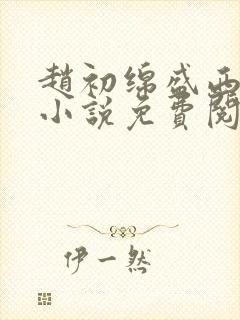 趙初綿盛西
小說免費閱
伊一然